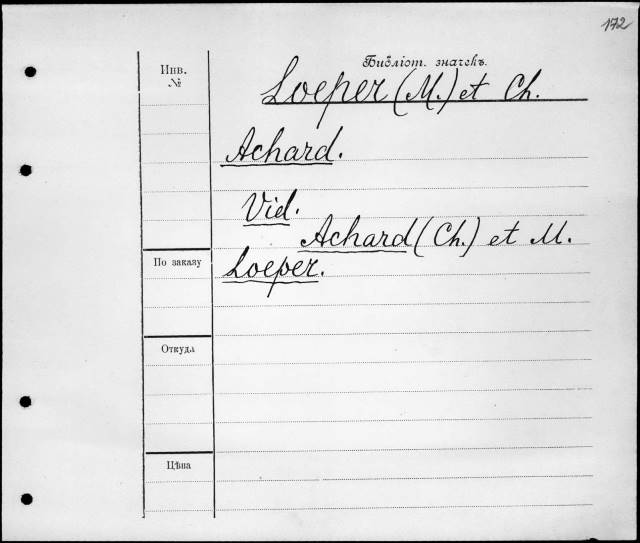 172
Инв.
№
Библіот. значекъ.
Loeper (M.) et Ch.
Achard.
Vid.
Achard (Ch.) et M.
Loeper.
По заказу
Откуда
Цѣна